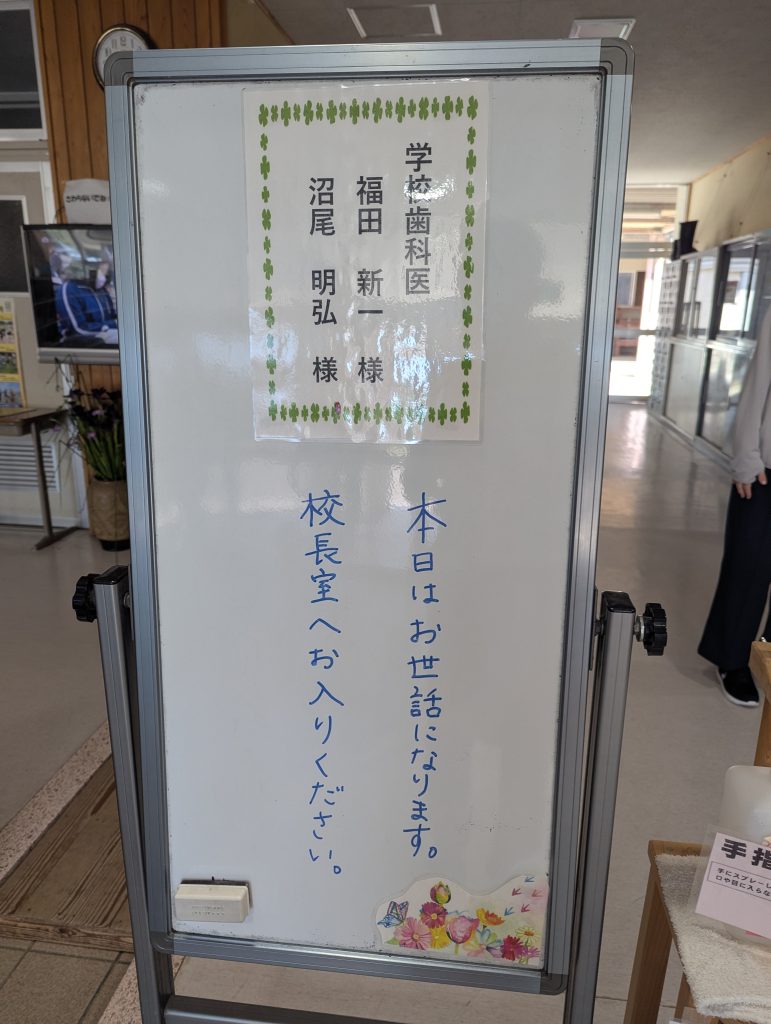 学校歯科医
福田 新一 様
沼尾 明弘 様
本日はお世話になります。
校長室へお入りください。
さわらないでね
手指
手にスプレーし
口や目に入らな